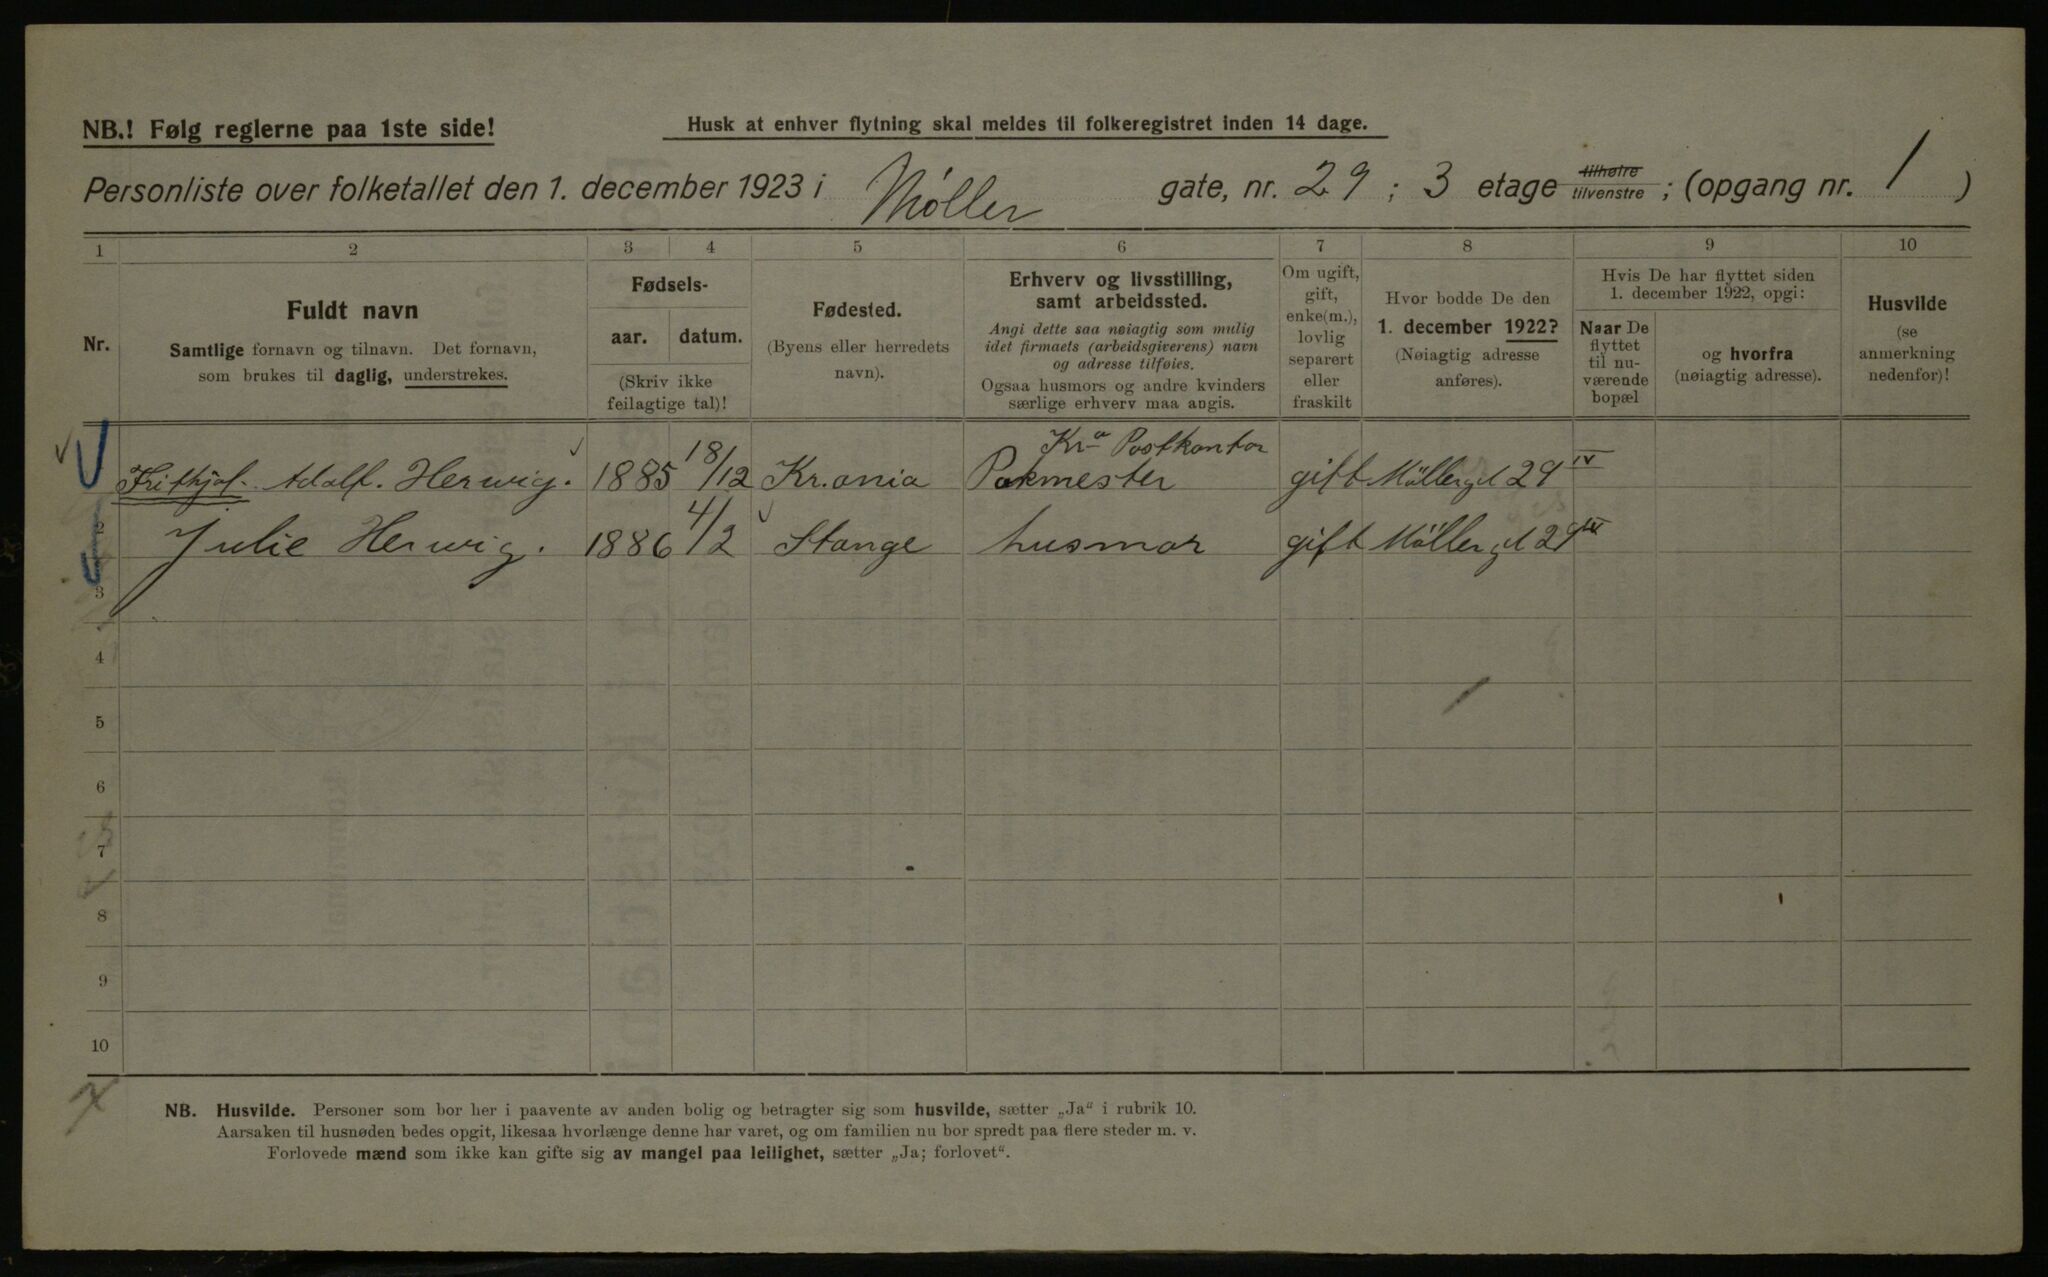 NB.! Følg reglerne paa 1ste side!
Husk at enhver flytning skal meldes til folkeregistret inden 14 dage.
Personliste over folketallet den 1. december 1923 i Møller gate, nr. 29; 3 etage tilhøire tilvenstre; (opgang nr. 1)
1 2 3 4 5 6 7 8 9 10
Nr.
Fuldt navn
Samtlige fornavn og tilnavn. Det fornavn,
som brukes til daglig, understrekes.
Fødsels-
aar. datum.
(Skriv ikke
feilagtige tal)!
Fødested.
(Byens eller herredets
navn).
Erhverv og livsstilling,
samt arbeidssted.
Angi dette saa nøiagtig som mulig
idet firmaets (arbeidsgiverens) navn
og adresse tilføies.
Ogsaa husmors og andre kvinders
særlige erhverv maa angis.
Om ugift,
gift,
enke(m.),
lovlig
separert
eller
fraskilt
Hvor bodde De den
1. december 1922?
(Nøiagtig adresse
anføres).
Hvis De har flyttet siden
1. december 1922, opgi:
Naar De
flyttet
til nu-
værende
bopæl
og hvorfra
(nøiagtig adresse).
Husvilde
(se
anmerkning
nedenfor)!
Kra Postkontor
Frithjof. Adolf. Herwig. 1885 18/12 Kr.ania Pakmester gift Møllergt 29 IV
2 Julie Herwig. 1886 4/2 Stange husmor gift Møllergt 29 IV
3
4
5
6
7
8
9
10
NB. Husvilde. Personer som bor her i paavente av anden bolig og betragter sig som husvilde, sætter „Ja" i rubrik 10.
Aarsaken til husnøden bedes opgit, likesaa hvorlænge denne har varet, og om familien nu bor spredt paa flere steder m. v.
Forlovede mænd som ikke kan gifte sig av mangel paa leilighet, sætter „Ja; forlovet".